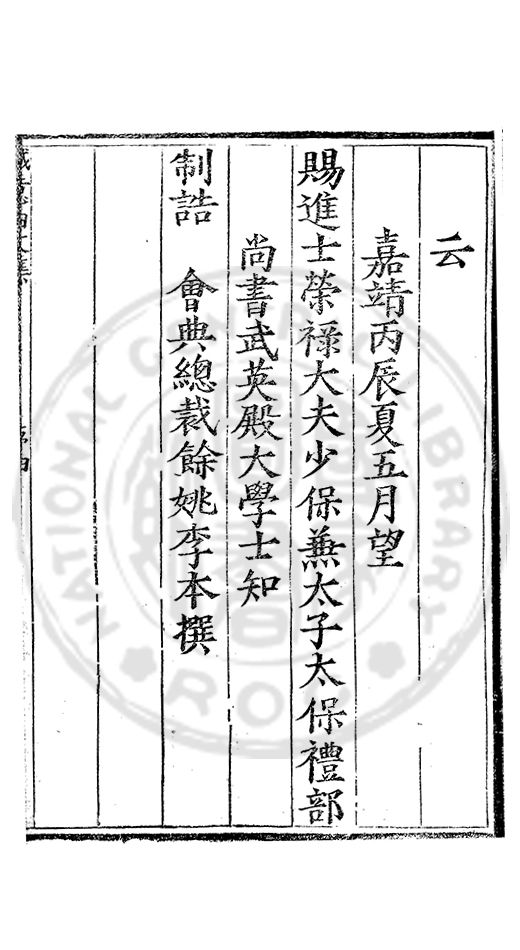 云
嘉靖丙辰夏五月望
賜進士榮祿大夫少保兼太子太保禮部
尚書武英殿大學士知
制誥 會典總裁餘姚李本撰
NATIONAL CENTRAL LIBRARY
R.O.C.